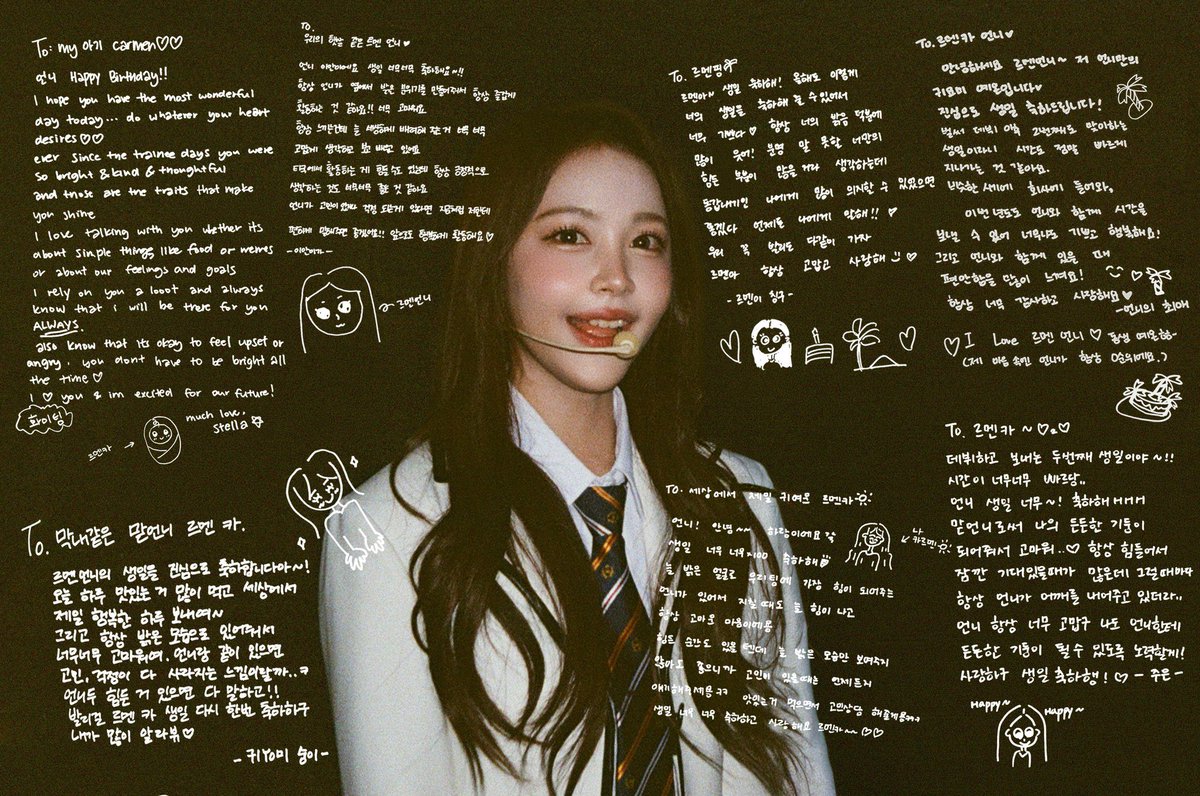 To: my 아기 carmen♡♡
언니 Happy Birthday!!
I hope you have the most wonderful
day today... do whatever your heart
desires♡♡
ever since the trainee days you were
so bright & kind & thoughtful
and those are the traits that make
you shine
I love talking with you whether its
about simple things like food or memes
or about our feelings and goals
I rely on you a looot and always
know that i will be there for you
ALWAYS.
also know that its okay to feel upset or
angry. you dont have to be bright all
the time♡
i ♡ you & im excited for our future!
화이팅
르멘카 →
much love,
stella
To.
우리의 햇살 같은 르멘 언니♥
언니 이안이에요 생일 너무너무 축하해요~!!
항상 언니가 옆에서 밝은 분위기를 만들어줘서 항상 즐겁게
활동하는 것 같아요!! 너무 고마워요
항상 느끼는건데 늘 세심하게 배려해 주는 거 너무 너무
고맙게 생각하고 보고 배우고 있어요
타국에서 활동하는 게 힘들수도 있는데 항상 긍정적으로
생각하는 것도 너무너무 좋은 것 같아요
언니가 고민이 있거나 걱정 되는게 있다면 지금처럼 저한테
편하게 말해주면 좋겠어요!! 앞으로도 행복하게 활동해요♡
-이안이가-
르멘언니
To. 르멘핑
르멘아~ 생일 축하해! 올해도 이렇게
너의 생일을 축하해 줄 수 있어서
너무 기쁘다♡ 항상 너의 밝음 덕분에
많이 웃어! 분명 말 못한 너만의
힘든 부분이 많을 거라 생각하는데
동갑내기인 나에게 많이 의지할 수 있었으면
좋겠다 언제든 나에게 말해!! ♡
우리 꼭 발리도 다같이 가자
르멘아 항상 고맙고 사랑해 ♡
- 르멘이 친구 -
To. 르멘카 언니♥
안녕하세요 르멘언니~ 저 언니만의
귀요미 예온입니다♡
진심으로 생일 축하드립니다!
벌써 데뷔 이후 2번째로 맞이하는
생일이라니 시간도 정말 빠르게
지나가는 것 같아요.
비슷한 시기에 회사에 들어와,
이번 년도도 언니와 함께 시간을
보낼 수 있어 너무나도 기쁘고 행복해요!
그리고 언니와 함께 있을 때
편안함을 많이 느껴요!
항상 너무 감사하고 사랑해요♥
-언니의 최애
I Love 르멘 언니♡ 동생 예온하-
(제 마음 속엔 언니가 항상 0순위에요.)
To. 막내같은 맏언니 르멘 카.
르멘언니의 생일을 진심으로 축하합니다아~!
오늘 하루 맛있는거 많이 먹고 세상에서
제일 행복한 하루 보내여~
그리고 항상 밝은 모습으로 있어줘서
너무너무 고마워여. 언니랑 같이 있으면
고민, 걱정이 다 사라지는 느낌이랄까..ㅋ
언니두 힘든 거 있으면 다 말하고!!
발리로 르멘 카 생일 다시 한번 축하하구
내가 많이 알라뷰♡
- 귀YOMI 숨이 -
To. 세상에서 제일 귀여운 르멘카
언니! 안녕~~ 하람이에요
생일 너무 너무x100 축하해
늘 밝은 얼굴로 우리팀에 가장 힘이 되어주는
언니가 있어서 지칠때도 늘 힘이 나고
항상 고마운 마음이에용
힘든 순간도 있을텐데 늘 밝은 모습만 보여주지
않아도 좋으니까 고민이 있을때는 언제든지
얘기해주세용ㅋㅋ 맛있는거 먹으면서 고민상담 해줄게용ㅋㅋ
생일 너무 너무 축하하고 사랑해요 르멘카~~♡♡
나.
카르멘
To. 르멘카 ~ ♡o♡
데뷔하고 보내는 두번째 생일이야~!!
시간이 너무너무 빠르당..
언니 생일 너무~! 축하해ㅐㅐㅐ
맏언니로써 나의 든든한 기둥이
되어줘서 고마워..♡ 항상 힘들어서
잠깐 기대있을때가 많은데 그럴때마다
항상 언니가 어깨를 내어주고 있더라..
언니 항상 너무 고맙구 나도 언니한테
든든한 기둥이 될 수 있도록 노력할게!
사랑하구 생일 축하행! ♡ - 주은-
Happy~
Happy~